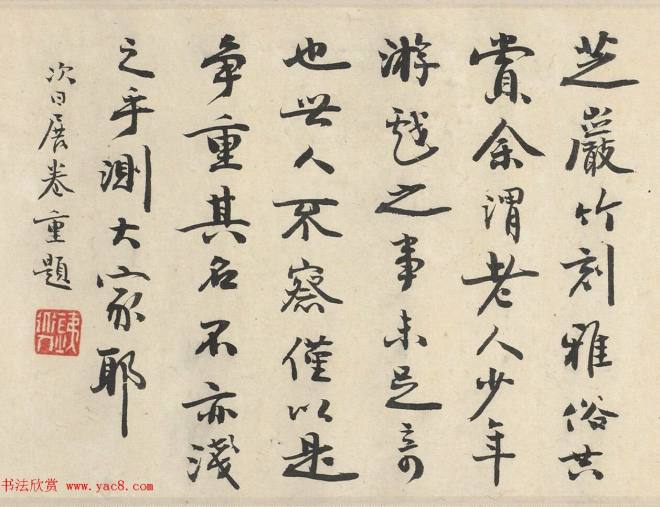 芝巖竹刻雅俗共
賞余謂老人少年
游戲之事未足奇
也世人不察僅以是
爭重其名不亦淺
之乎測大家耶
次日展卷重題
书法欣赏 www.yac8.com